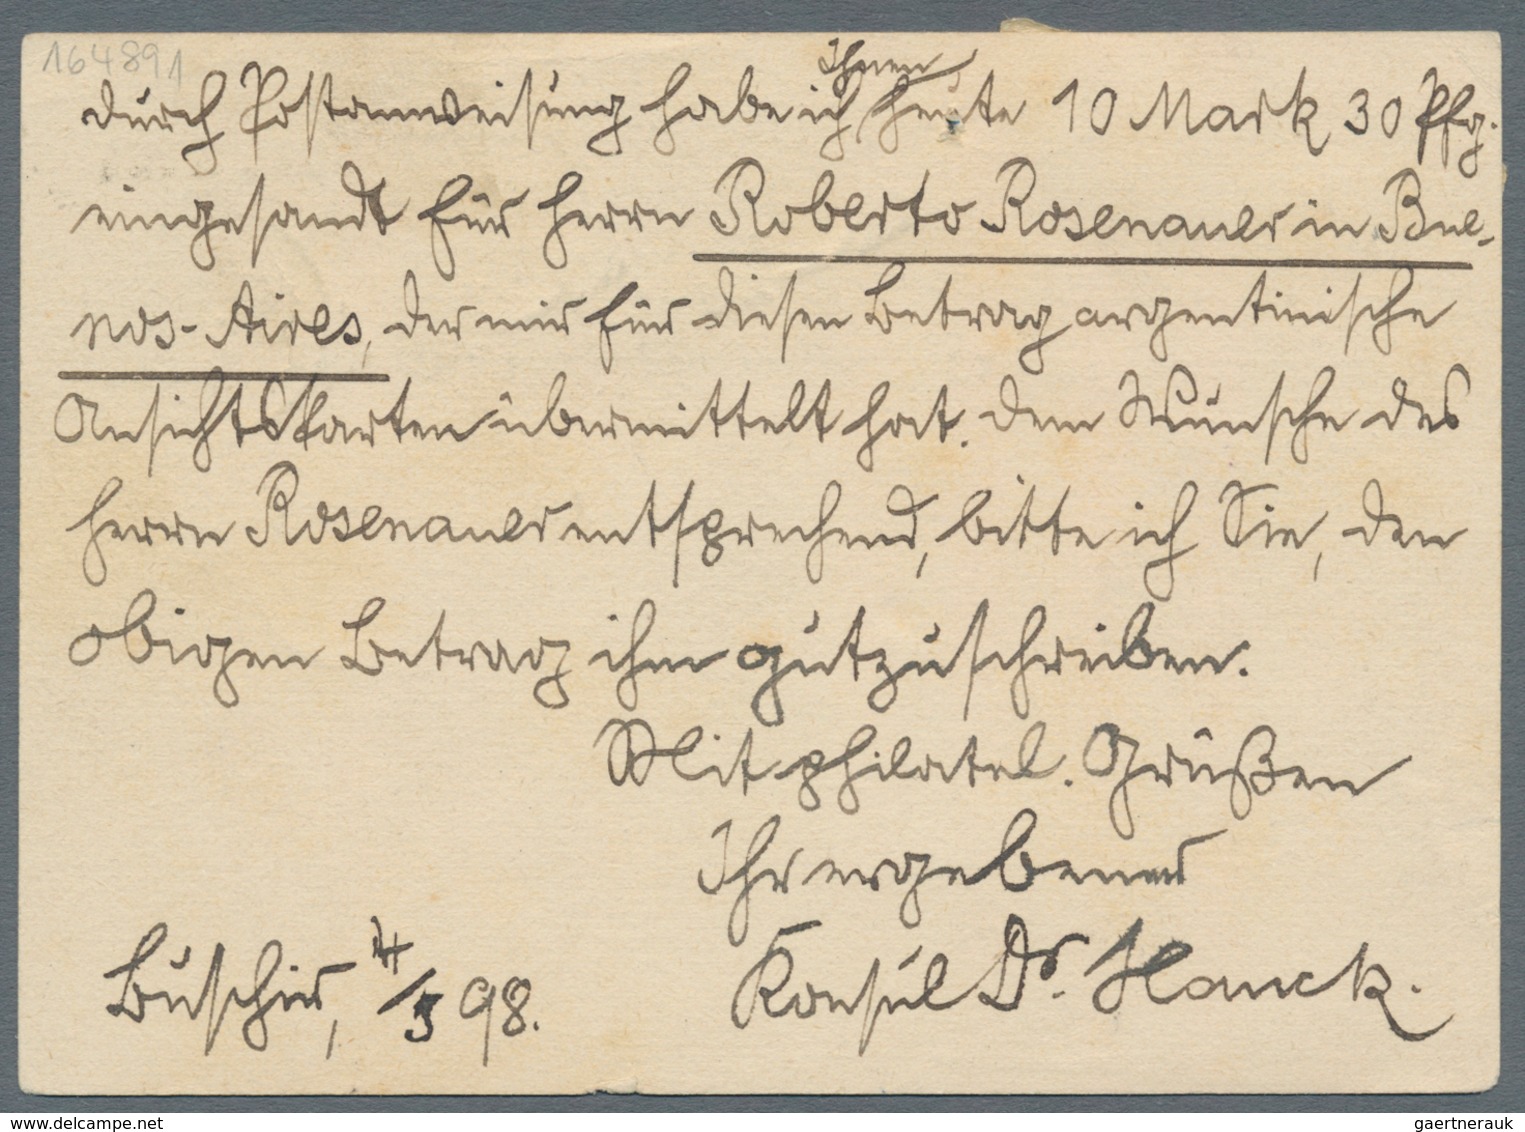 164891
durch Postanweisung habe ich Ihnen heute 10 Mark 30 Pfg.
eingesandt für Herrn Roberto Rosenauer in Bue-
nos-Aires, der mir für diesen Betrag argentinische
Ansichtskarten übermittelt hat. Dem Wunsche des
Herrn Rosenauer entsprechend, bitte ich Sie, den
obigen Betrag ihm gutzuschreiben.
Mit philatel. Grüßen
Ihr ergebener
Buschir, /5 98.
Konsul Dr. Hanck.
gaertnerauk@delcampe.net